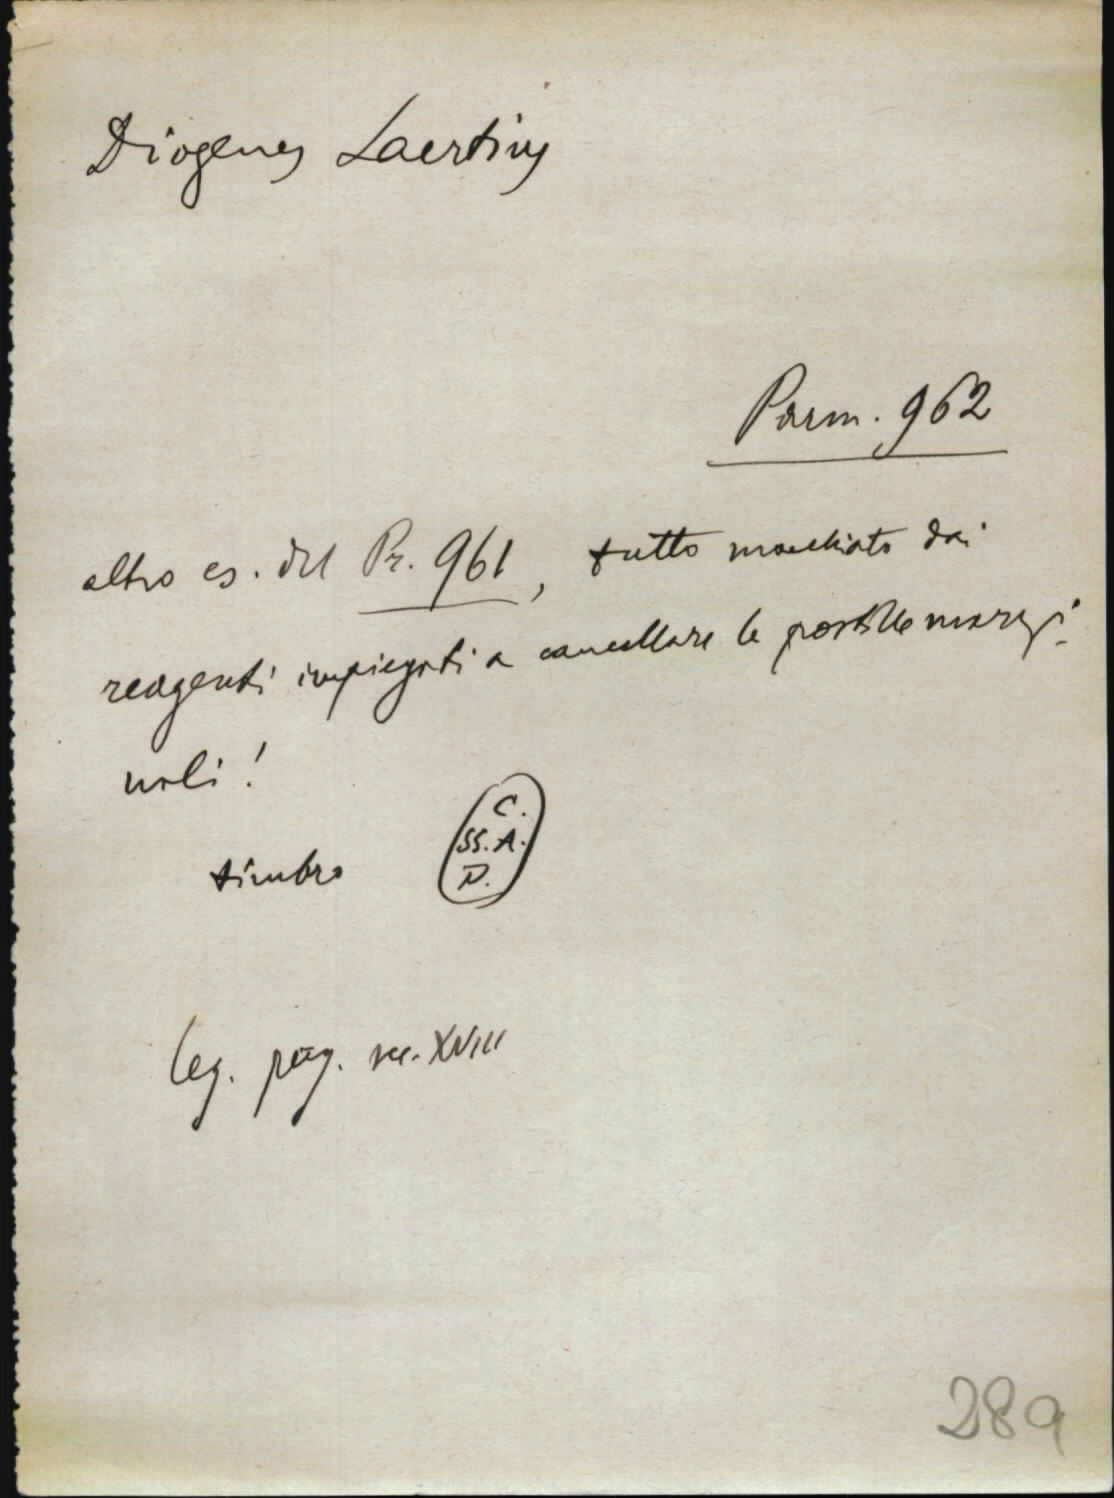 Diogenes Laertius
Parm. 962
altro es. del Pr. 961, tutto macchiato dai
reagenti impiegati a cancellare le postille margi-
nali!
timbro
C.
SS. A.
D.
leg. perg. sec. XVIII
289